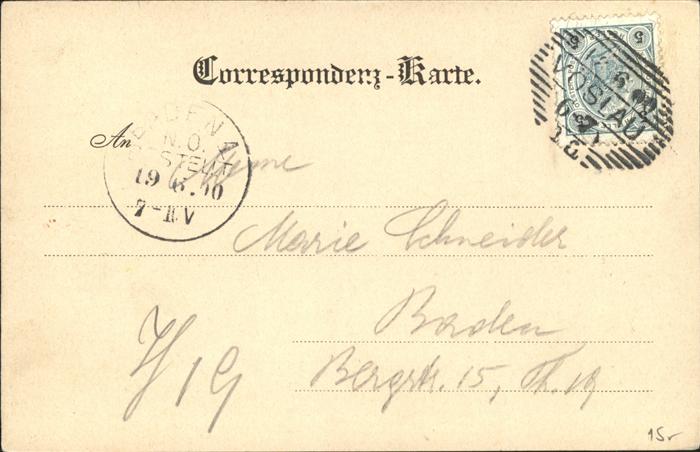 Correspondenz-Karte.
An
BADEN
N.Ö.
BESTELLT
19 6.00
7-11 V
VÖSLAU
5
Marie Schneider
Baden
Bergstr. 15, Th. 19
15,-